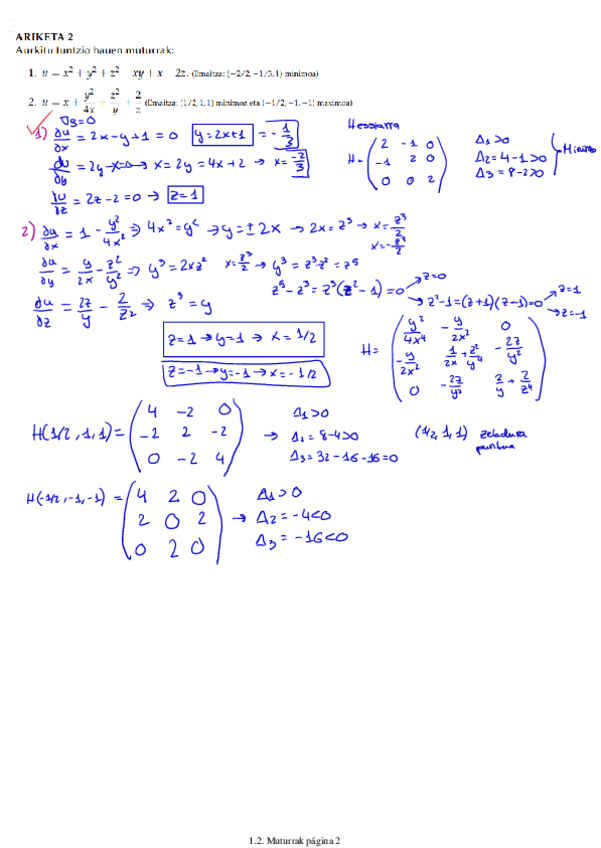 ARIKETA 2
Aurkitu funtzio hauen muturrak:
1. u = x² + y² + z² xy + x 2z. (Emaitza: (−2/3, −1/3, 1) minimoa)
2. u = x + y²/4x + z²/y + 2/z (Emaitza: (1/2, 1, 1) minimoa eta (−1/2, −1, −1) maximoa)
∇B=0
1) ∂u/∂x = 2x-y+1 = 0 y=2x+1 = -1/3
∂u/∂y = 2y-x=0 → x = 2y = 4x+2 → x = -2/3
∂u/∂z = 2z-2=0 → z=1
Hessiarra
H = (2 -1 0
-1 2 0
0 0 2)
Δ₁>0
Δ₂=4-1>0
Δ₃=8-2>0
Minimo
2) ∂u/∂x = 1 - y²/4x² ⇒ 4x²=y² → y=±2x → 2x=z³ → x=z³/2
x=-z³/2
∂u/∂y = y/2x - z²/y² ⇒ y³=2xz² x=z³/2 → y³=z³z²=z⁵
z⁵-z³ = z³(z²-1)=0 → z=0
→ z²-1=(z+1)(z-1)=0 → z=1
→ z=-1
∂u/∂z = 2z/y - 2/z² ⇒ z³=y
z=1 → y=1 → x=1/2
z=-1 → y=-1 → x=-1/2
H = (y²/4x⁴ -y/2x² 0
-y/2x² 1/2x + z²/y⁴ -2z/y²
0 -2z/y² 2/y + 2/z⁴)
H(1/2,1,1) = (4 -2 0
-2 2 -2
0 -2 4)
→ Δ₁>0
Δ₂=8-4>0
Δ₃=32-16-16=0
(1/2,1,1) zeladura puntua
H(-1/2,-1,-1) = (4 2 0
2 0 2
0 2 0)
→ Δ₁>0
Δ₂=-4<0
Δ₃=-16<0
1.2. Muturrak página 2